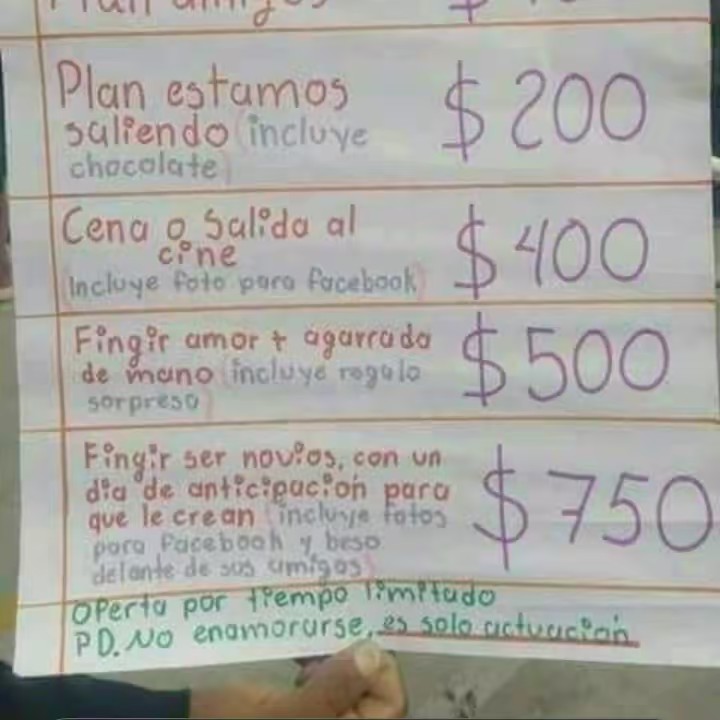 Plan amigos $
Plan estamos $ 200
saliendo (incluye
chocolate)
Cena o Salida al $ 400
cine
(Incluye foto para facebook)
Fingir amor + agarrada $ 500
de mano (incluye regalo
sorpresa)
Fingir ser novios, con un $ 750
dia de anticipación para
que le crean (incluye fotos
para Facebook y beso
delante de sus amigos)
Operta por tiempo limitado
PD. No enamorarse, es solo actuación